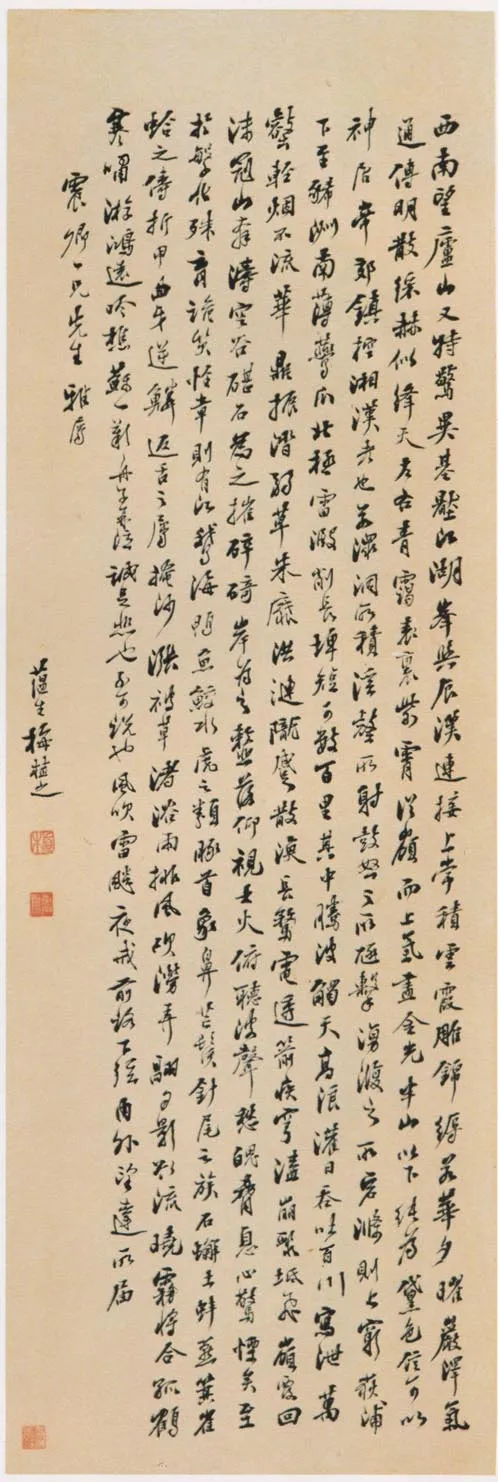 西南望廬山又特驚異基壓江湖峯與辰漢連接上常積雲霞雕錦縟若華夕曜巖澤氣
通傳明散綵赫似絳天左右青靄表裏紫霄從嶺而上氣盡金光半山以下純為黛色信可以
神居帝郊鎮控湘漢者也若潨洞所積溪壑所射鼓怒之所豗擊湧澓之所宕滌則上窮荻浦
下至狶洲南薄鷰爪北極雷澱削長埤短可數百里其中騰波觸天高浪灌日吞吐百川寫泄萬
壑輕烟不流華鼎振涾弱草朱靡洪漣隴蹙散渙長驚電透箭疾穹溘崩聚坻飛嶺覆回
沫冠山奔濤空谷碪石為之摧碎碕岸為之落仰視大火俯聽波聲愁魄脅息心驚慄矣至
於繁化殊育詭質怪章則有江鵞海鴨魚鮫水虎之類豚首象鼻芒鬚針尾之族石蟹土蚌燕箕雀
蛤之儔折甲曲牙逆鱗返舌之屬掩沙漲被草渚浴雨排風吹澇弄翮夕影欲流曉霧將合孤鶴
寒嘯游鴻遠吟樵蘇一歎舟子再泣誠足悲也不可說也風吹雷飆夜戒前路下弦內外望達所屆
震卿一兄先生雅屬
蘊生梅植之